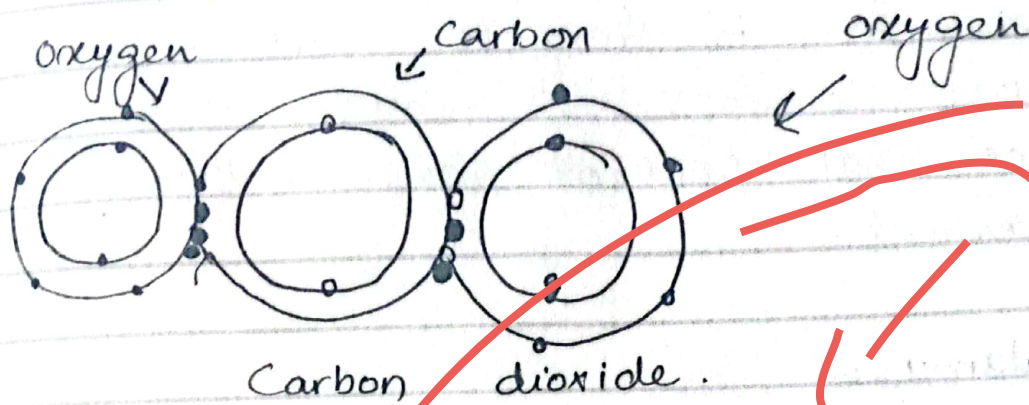 oxygen
Carbon
oxygen
Carbon dioxide.